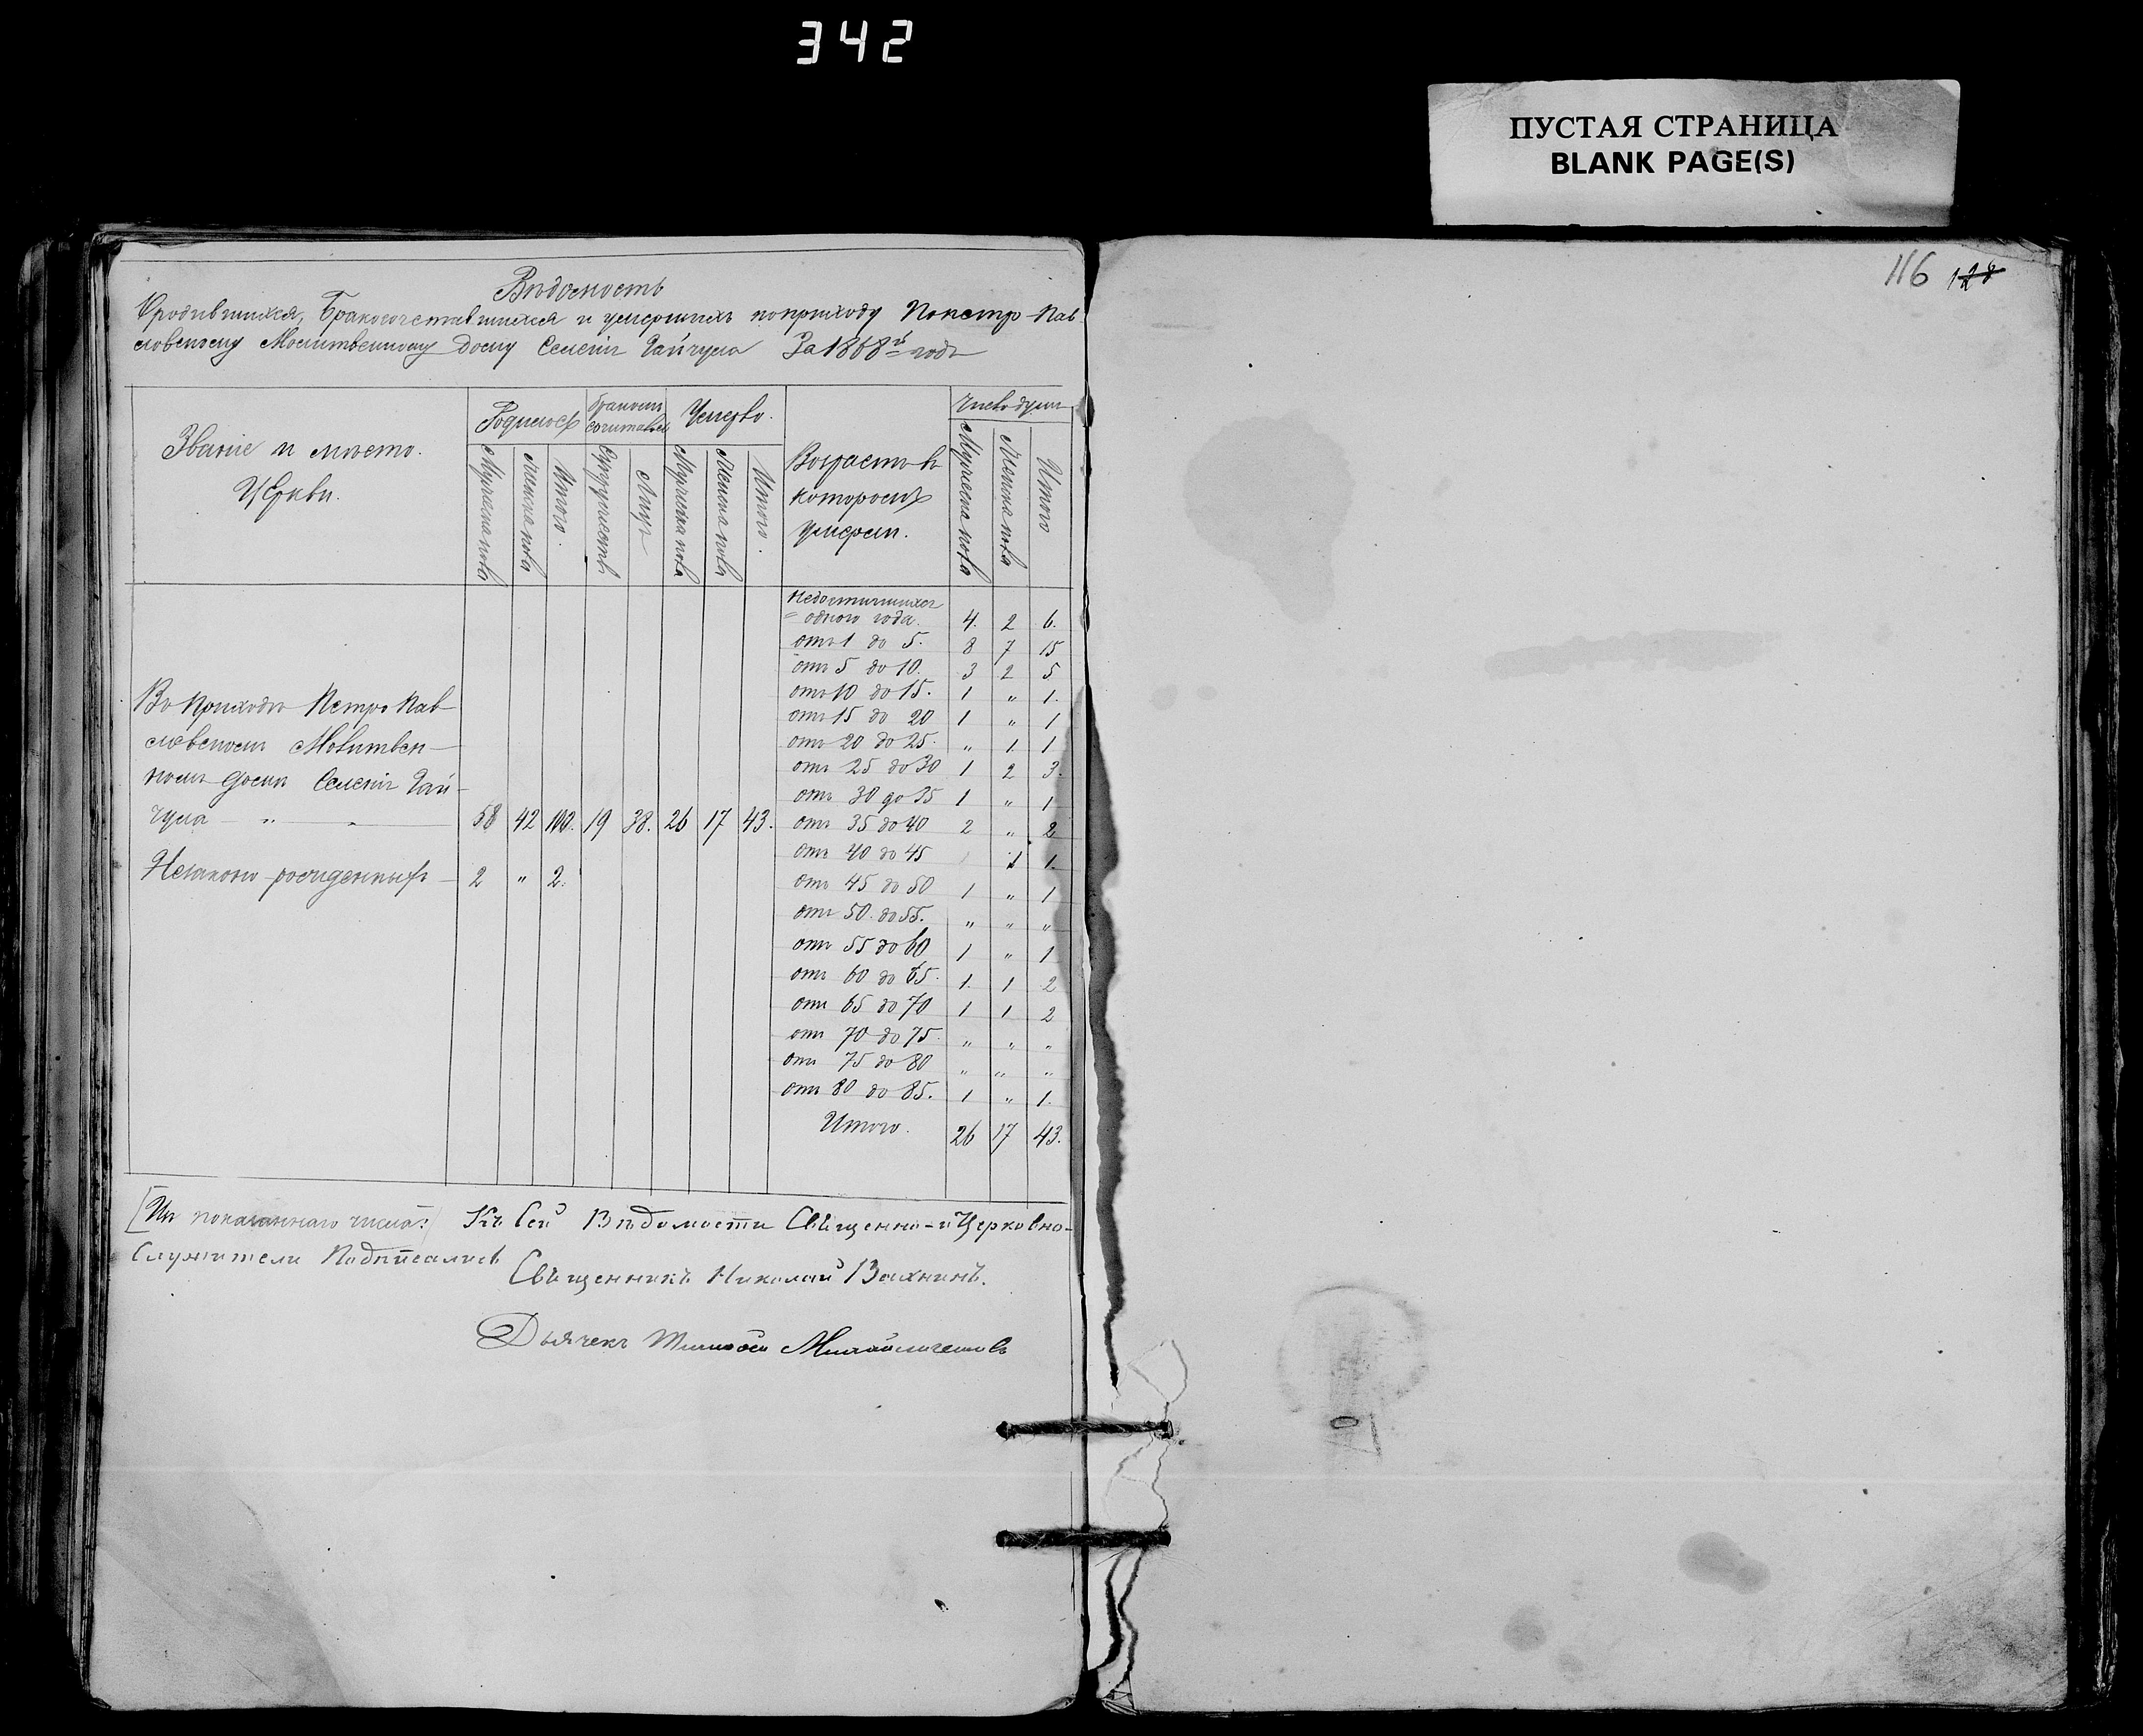 342
ПУСТАЯ СТРАНИЦА
BLANK PAGE(S)
116 128
Вѣдомость
О родившихся, Бракосочетавшихся и умершихъ по приходу Попетро-Пав
ловскому Молитвенному Дому Селенія Гайчула За 1868й годъ
Званіе и мѣсто.
Церкви.
Родилось
бракомъ
сочитаlось
Умерло.
Возрастъ въ
которомъ
умерли.
Число душъ
Мужеска пола
Женска пола
Итого.
Супружествъ
Лицъ
Мужеска пола
Женска пола
Итого.
Мужеска пола
Женска пола
Итого
Недостигшихъ
одного года. 4. 2 6.
отъ 1 до 5. 8 7 15
отъ 5 до 10. 3 2 5
отъ 10 до 15. 1 „ 1.
отъ 15 до 20 1 „ 1
отъ 20 до 25. „ 1 1
отъ 25 до 30 1 2 3.
отъ 30 до 35 1 „ 1
отъ 35 до 40 2 „ 2
отъ 40 до 45 1 1.
отъ 45 до 50 1 „ 1
отъ 50 до 55. „ „ „
отъ 55 до 60 1 „ 1
отъ 60 до 65. 1. 1 2
отъ 65 до 70 1 1 2
отъ 70 до 75. „ „ „
отъ 75 до 80 „ „ „
отъ 80 до 85. 1 „ 1.
Итого. 26 17 43.
Въ Приходѣ Петро Пав
ловскомъ Молитвен
номъ Домѣ Селенія Гай
чула „ „ 58 42 100. 19 38. 26 17 43.
Незаконно-рожденныхъ 2 „ 2.
Изъ показаннаго числа: Къ Сей Вѣдомости Священно-и Церковно-
Служители Подписались
Священникъ Николай Вахнинъ.
Дьячекъ